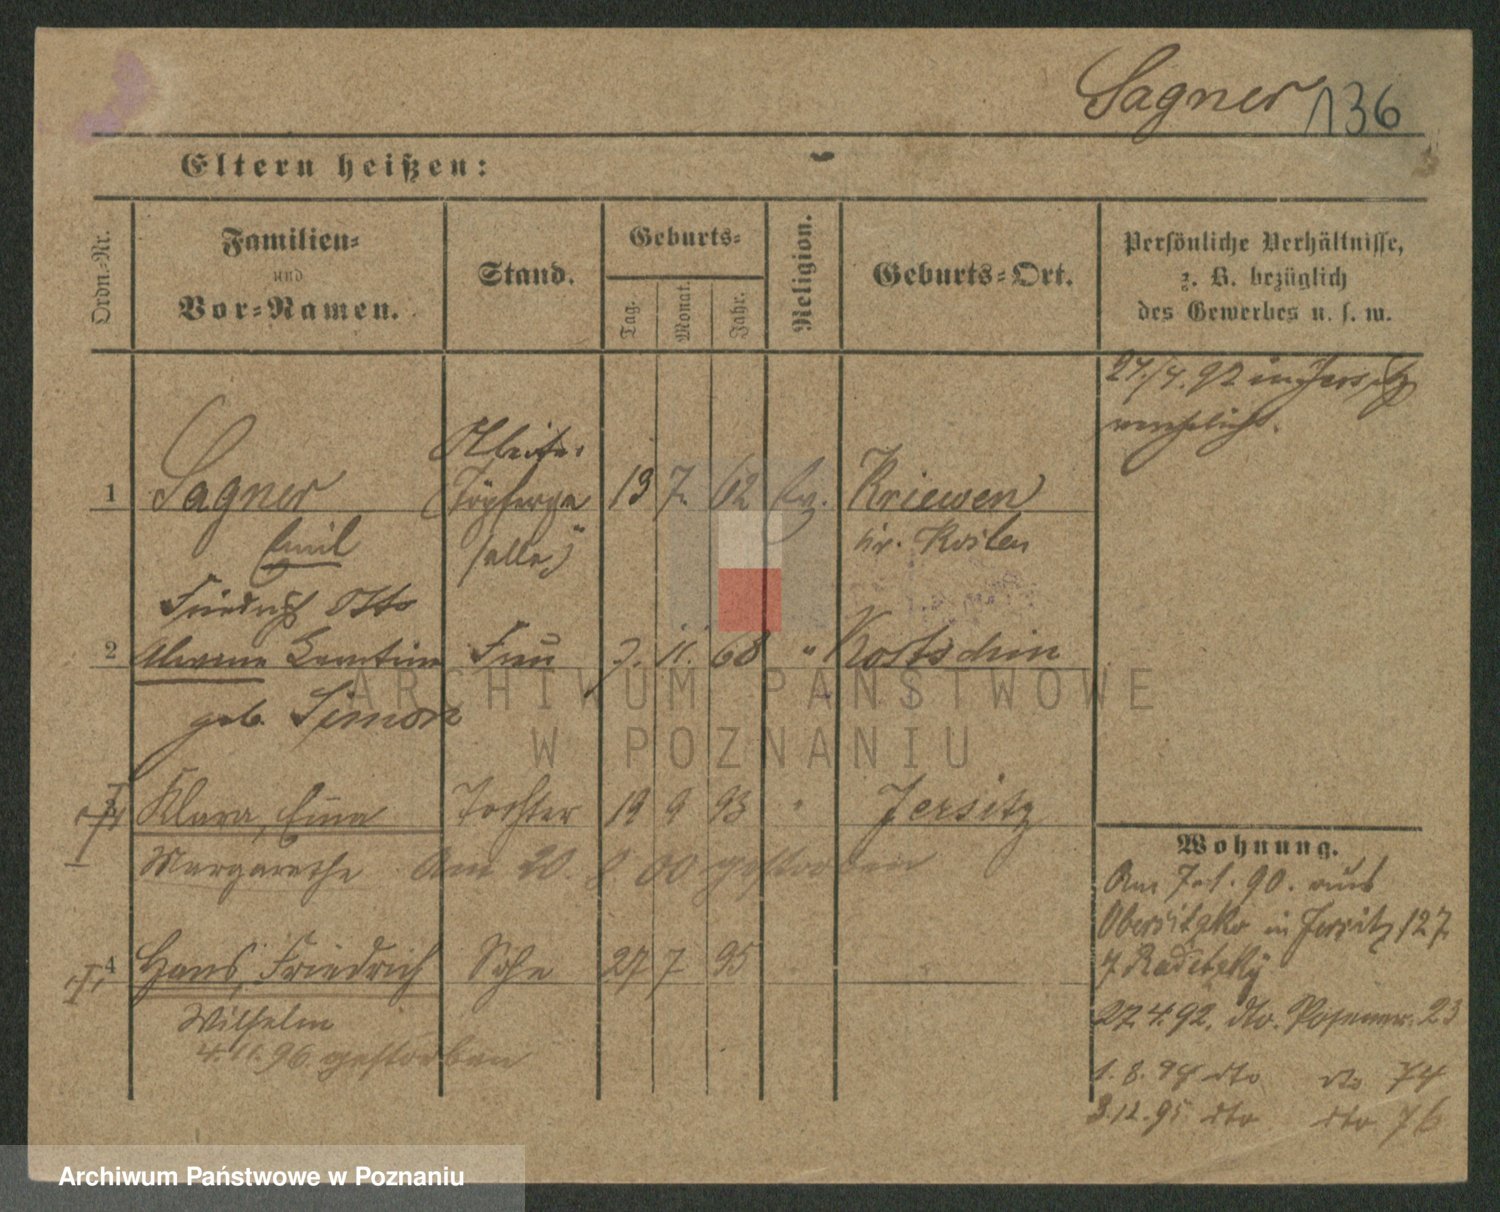 Sagner 136
Eltern heißen:
Ordn.-Nr.
Familien-
und
Vor-Namen.
Stand.
Geburts-
Tag.
Monat.
Jahr.
Religion.
Geburts-Ort.
Persönliche Verhältnisse,
z. B. bezüglich
des Gewerbes u. s. w.
27./4. 92 in Jersitz
verehelicht.
1 Sagner 13 7. 62 Ev. Kriewen
Emil
Kr. Kosten
Friedrich Otto
2 Frau 7. 11. 68 " Kostschin
geb. Simon
3 Klara, Emma Tochter 19 9 93 " Jersitz
Margarethe Am 20. 00 gestorben
4 Hans, Friedrich Sohn 27 7 95
Wilhelm
4. 11. 96. gestorben
Wohnung.
Am 90. aus
Obersitzko in Jersitz 127
27.4.92. dto. Posener. 23
1. 8. 94 dto dto 74
3.12.95 dto dto. 76
ARCHIWUM PAŃSTWOWE
W POZNANIU
Archiwum Państwowe w Poznaniu